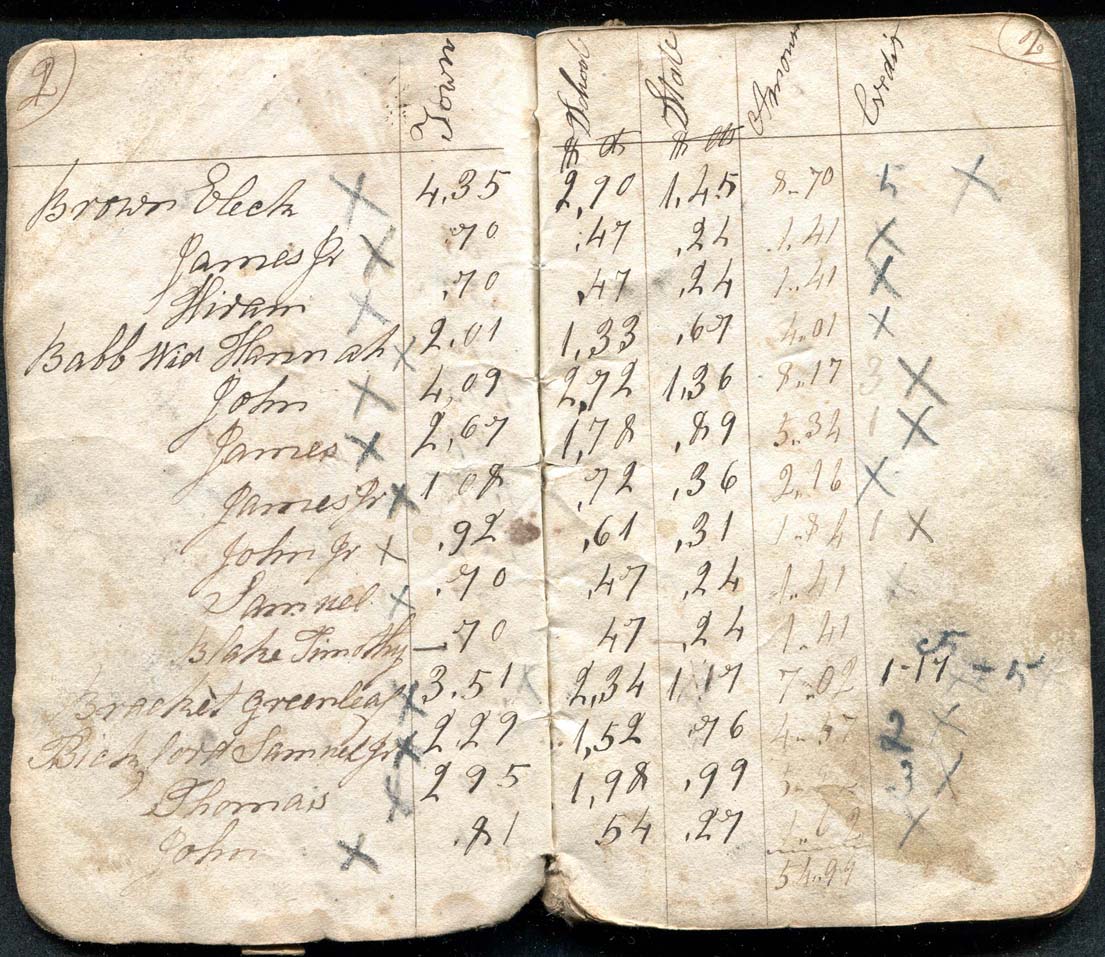 2 2
Town School State Amount Credit
$ cts $ cts
Brown Eleck X 4,35 2,90 1,45 8..70 5 X
James Jr X .70 .47 .24 1.41 X
Hiram X .70 .47 .24 1.41 X
Babb Wid Hannah X 2,01 1,33 .67 4.01 X
John X 4,09 2,72 1,36 8.17 3 X
James X 2,67 1,78 .89 5.34 1 X
James Jr X 1 08 .72 .36 2.16 X
John Jr X .92 .61 .31 1.84 1 X
Samuel X .70 .47 .24 1.41 X
Blake Timothy .70 47 .24 1.41
Bracket Greenleaf X 3.51 X 2,34 1,17 7.02 1-17 X 5
Bickford Samuel Jr X 2.29 1,52 .76 4.57 2 X
Thomas X 2 95 1,98 .99 3 X
John X .81 54 .27 1.62 X
54.99